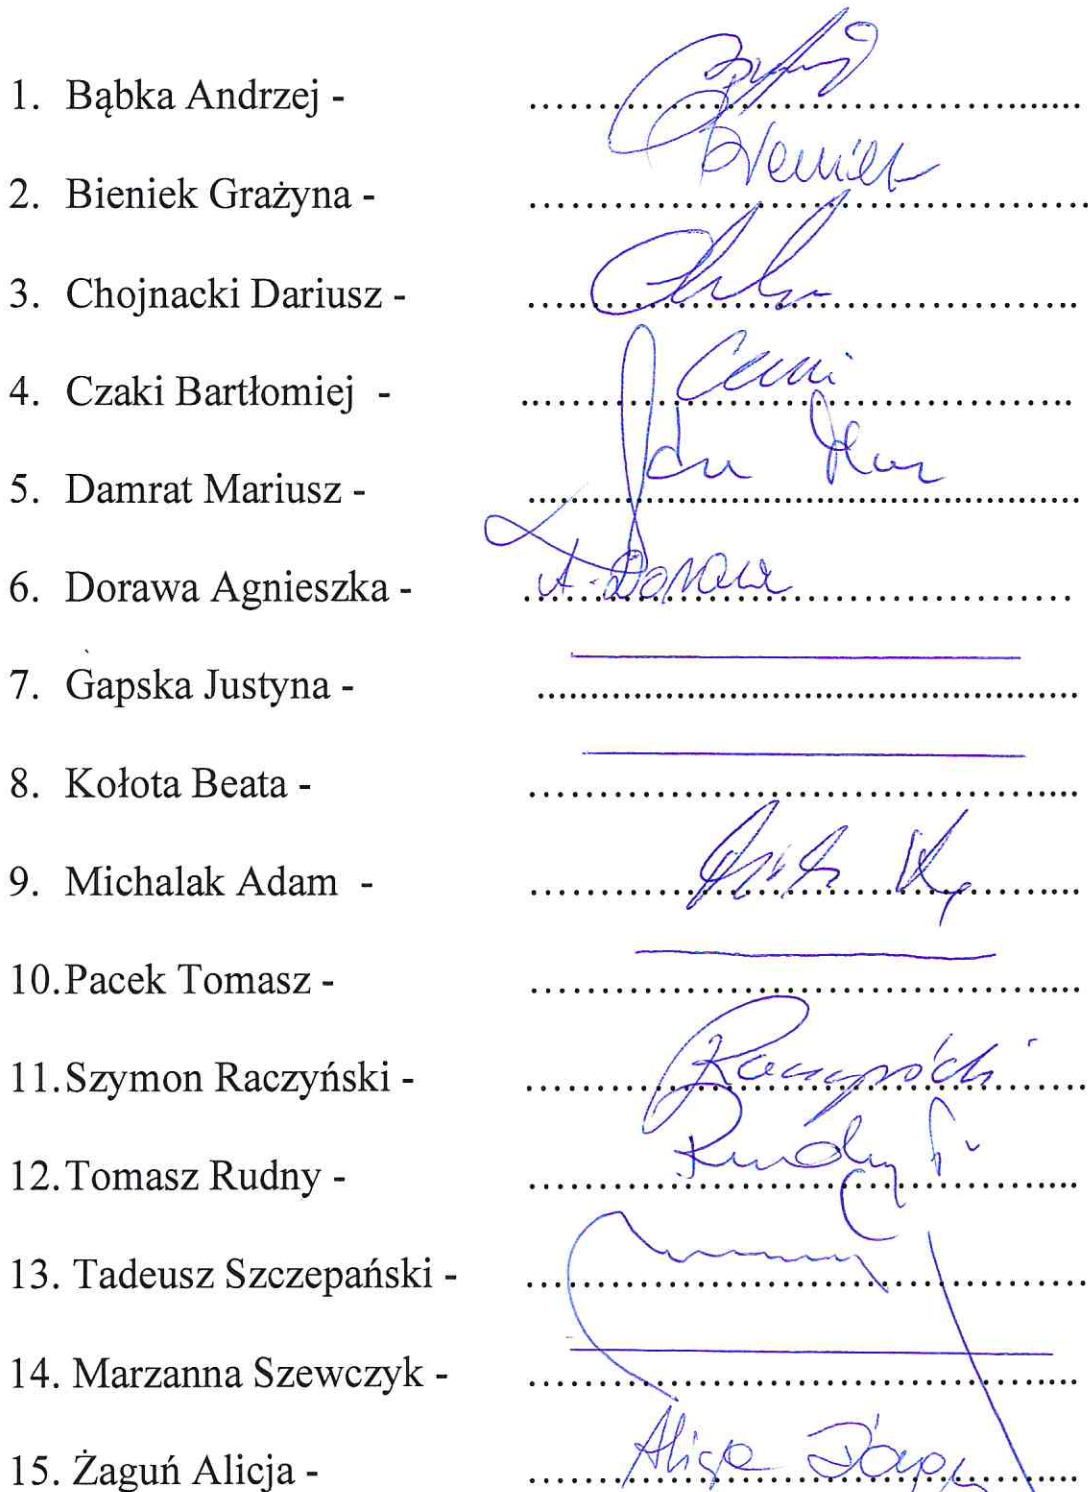 1. Bąbka Andrzej - ..................................................
2. Bieniek Grażyna - Bieniek ..................................................
3. Chojnacki Dariusz - ..................................................
4. Czaki Bartłomiej - ..................................................
5. Damrat Mariusz - ..................................................
6. Dorawa Agnieszka - A. Dorawa ..................................................
7. Gapska Justyna - ..................................................
8. Kołota Beata - ..................................................
9. Michalak Adam - ..................................................
10. Pacek Tomasz - ..................................................
11. Szymon Raczyński - Raczyński ..................................................
12. Tomasz Rudny - Rudny T. ..................................................
13. Tadeusz Szczepański - ..................................................
14. Marzanna Szewczyk - ..................................................
15. Żaguń Alicja - Alicja ..................................................